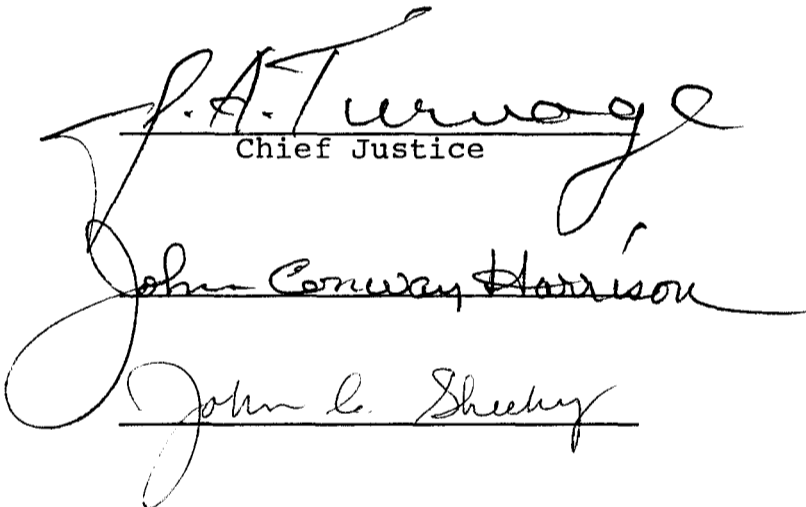 J. A. Turnage
Chief Justice
John Conway Harrison
John C. Sheehy